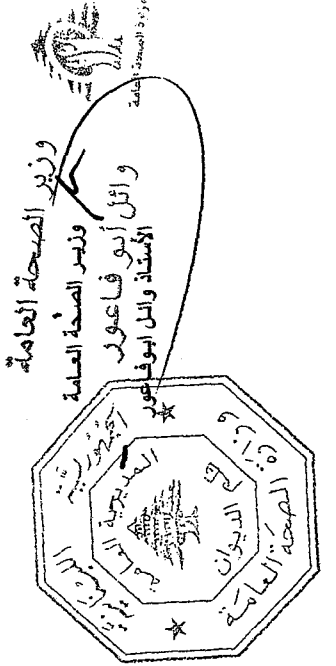 وزارة الصحة العامة
وزير الصحة العامة
وزير الصحة العامة
وائل أبو فاعور
الأستاذ وائل ابو فاعور
الجمهورية اللبنانية
وزارة الصحة العامة
المديرية العامة
الديوان